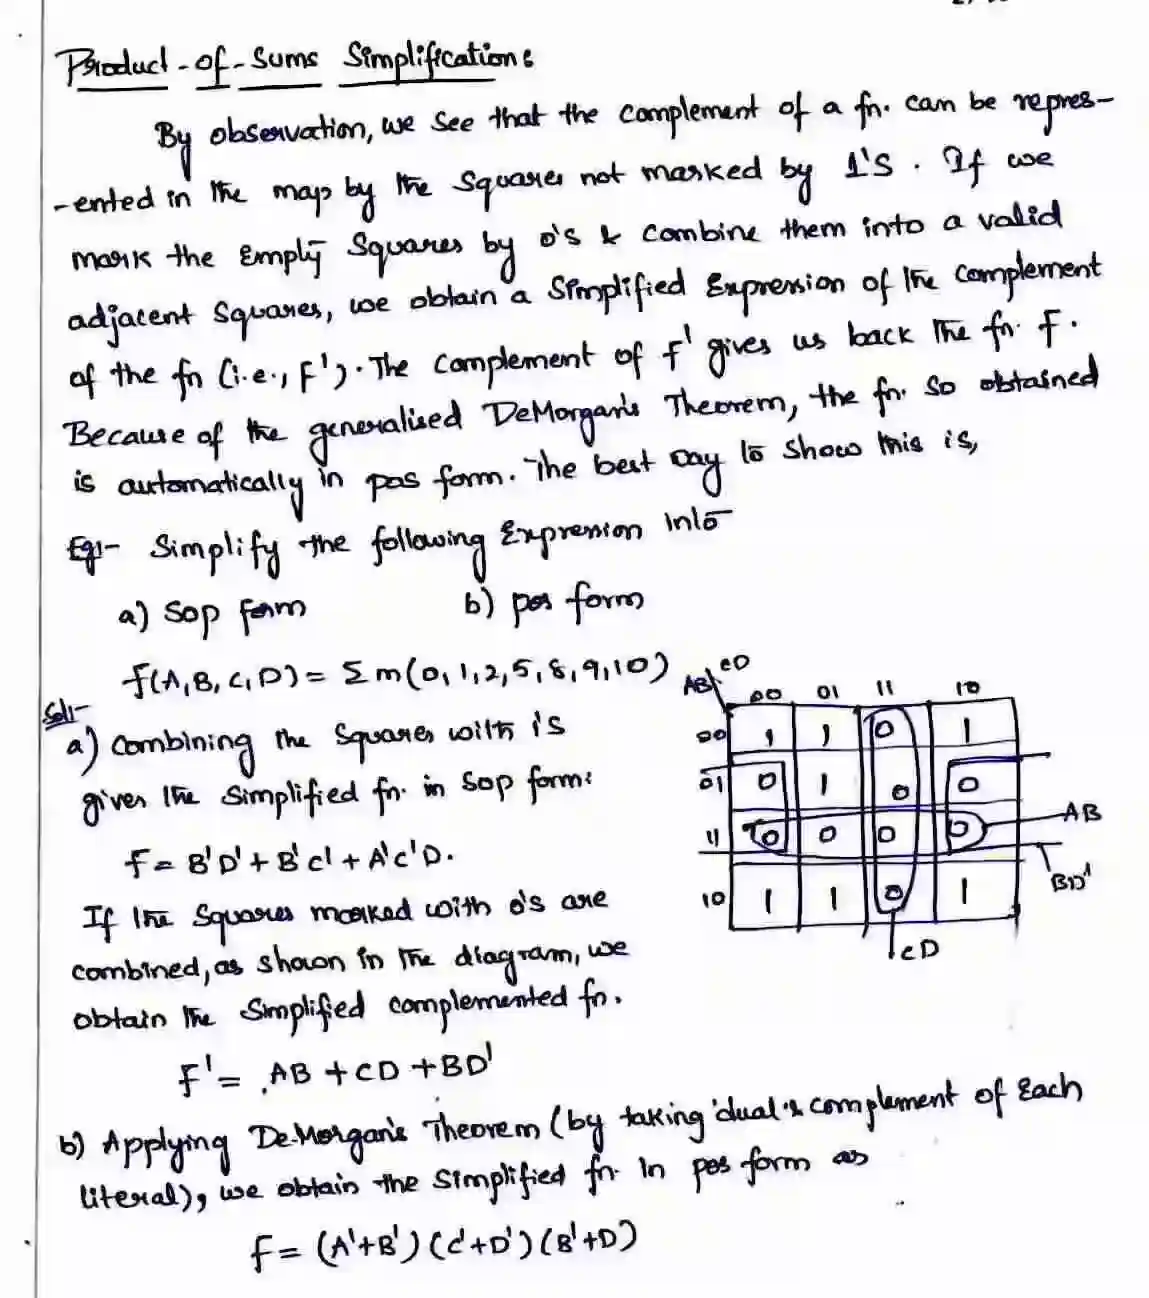 Product-of-Sums Simplification:
By observation, we see that the complement of a fn. can be repres-
-ented in the map by the squares not marked by 1's. If we
mark the Empty Squares by 0's & combine them into a valid
adjacent squares, we obtain a Simplified Expression of the complement
of the fn (i.e., F'). The complement of f' gives us back the fn. f.
Because of the generalised DeMorgan's Theorem, the fn. so obtained
is automatically in pos form. The best way to show this is,
Eg:- Simplify the following Expression into
a) Sop form b) pos form
f(A,B,C,D) = Σm(0,1,2,5,8,9,10)
Sol:-
a) Combining the Squares with 1's
gives the simplified fn. in Sop form:
f = B'D' + B'C' + A'C'D.
If the Squares marked with 0's are
combined, as shown in the diagram, we
obtain the simplified complemented fn.
F' = AB + CD + BD'
AB CD
00 01 11 10
00 1 1 0 1
01 0 1 0 0
11 0 0 0 0 AB
10 1 1 0 1 BD'
CD
b) Applying DeMorgan's Theorem (by taking dual & complement of Each
literal), we obtain the simplified fn. in pos form as
f = (A'+B') (C'+D') (B'+D)